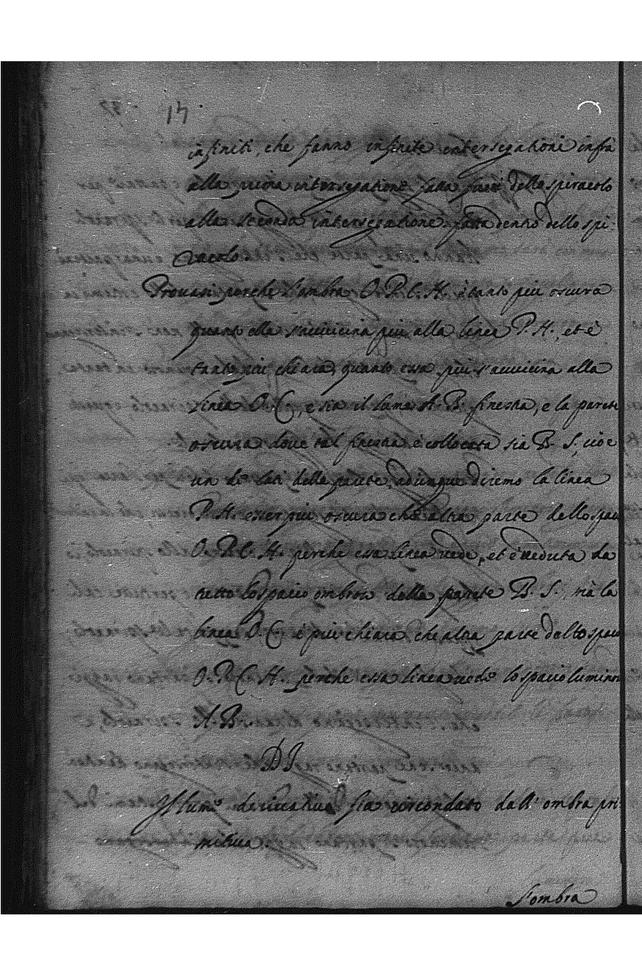 14
infiniti, che fanno infinite intersegationi infra
alla prima intersegatione fatta fuori dello spiracolo
alla seconda intersegatione fatta dentro dello spi-
racolo.
Provasi perche l'ombra O. P. C. H. è tanto più oscura
quanto ella s'avvicina più alla linea P. H., et è
tanto più chiara, quanto essa più s'avvicina alla
linea O. C., e sia il lume A. B. finestra, e la parete
oscura dove tal finestra è collocata sia B. S., cioè
un de' lati della parete, adunque diremo la linea
P. H. esser più oscura che altra parte dello spa
O. P. C. H. perche essa linea vede, et è veduta da
tutto lo spacio ombroso della parete B. S., mà la
linea O. C. è più chiara che altra parte dello spa
O. P. C. H. perche essa linea vede lo spacio lumino
A. B.
DI
Il lume derivativo sia circondato dall'ombra pri-
mitiva.
L'ombra